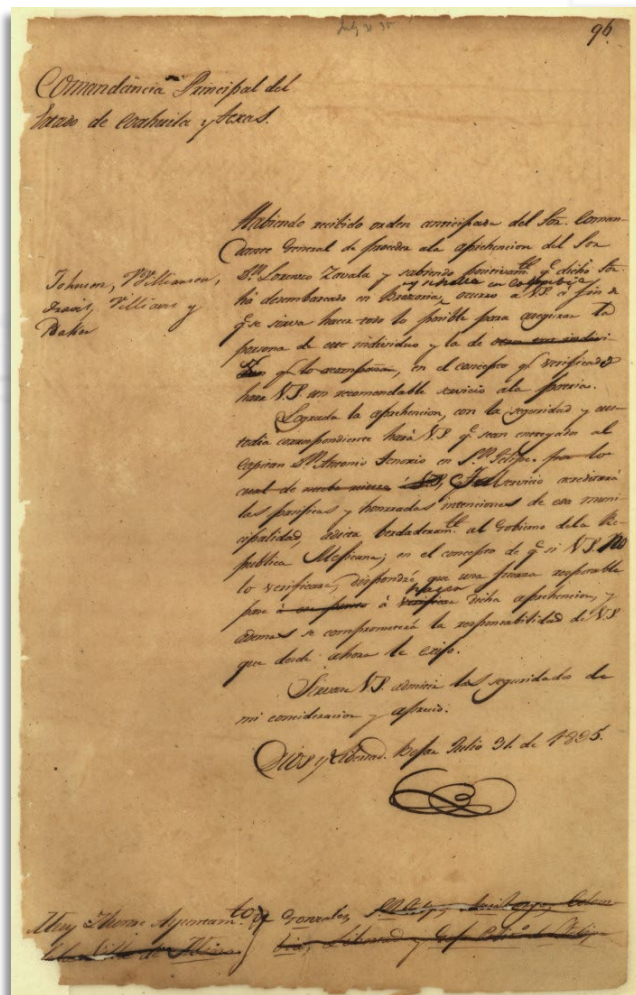 July 31 35
96.
Comandancia Principal del
Estado de Coahuila y Texas.
Habiendo recibido orden anticipada del Sor. Coman
dante General de proceder ala aprehencion del Sor
Dn. Lorenzo Zavala y sabiendo positivamte. q.e dicho Sor.
y se halla en Columbia
há desembarcado en Brazoria, ocurro a V.S. á fin de
q.e se sirva hacer todo lo posible para asegurar la
persona de este individuo y la de
q.e lo acompañan, en el concepto q.e verificado
hará V.S. un recomendable servicio ala patria.
Johnson, Williamson,
Travis, Williams y
Baker
Lograda la aprehencion, con la seguridad y cus-
todia correspondiente hará V.S. q.e sean entregados al
Capitan Dn. Antonio Tenorio en Sn. Felipe. por lo
cual de servicio acreditará
las pacificas y honradas intenciones de esa muni
cipalidad, adicta berdaderamte. al Gobierno dela Re-
publica Mejicana; en el concepto de q.e si V.S. no
lo verificara, dispondré que una fuerza respetable
hacer
pase á verificar dicha aprehencion, y
ademas se comprometerá la responsabilidad de V.S.
que desde ahora le exijo.
Sirvase V.S. admitir las seguridades de
mi consideracion y aprecio.
Dios y Libertad. Bejar Julio 31. de 1835.
Muy Ilustre Ayuntamto. de Gonzales,
Libertad y